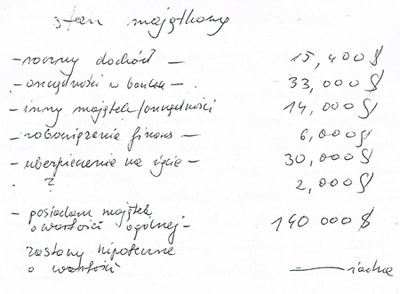 stan majątkowy
– roczny dochód – 15,400 $
– oszczędności w banku – 33,000 $
– inny majątek/oszczędności 14,000 $
– zobowiązania finans – 6,000 $
– ubezpieczenie na życie – 30,000 $
. ? 2,000 $
– posiadam majątek
o wartości ogólnej – 140 000 $
zastawy hipoteczne
o wartości — żadne